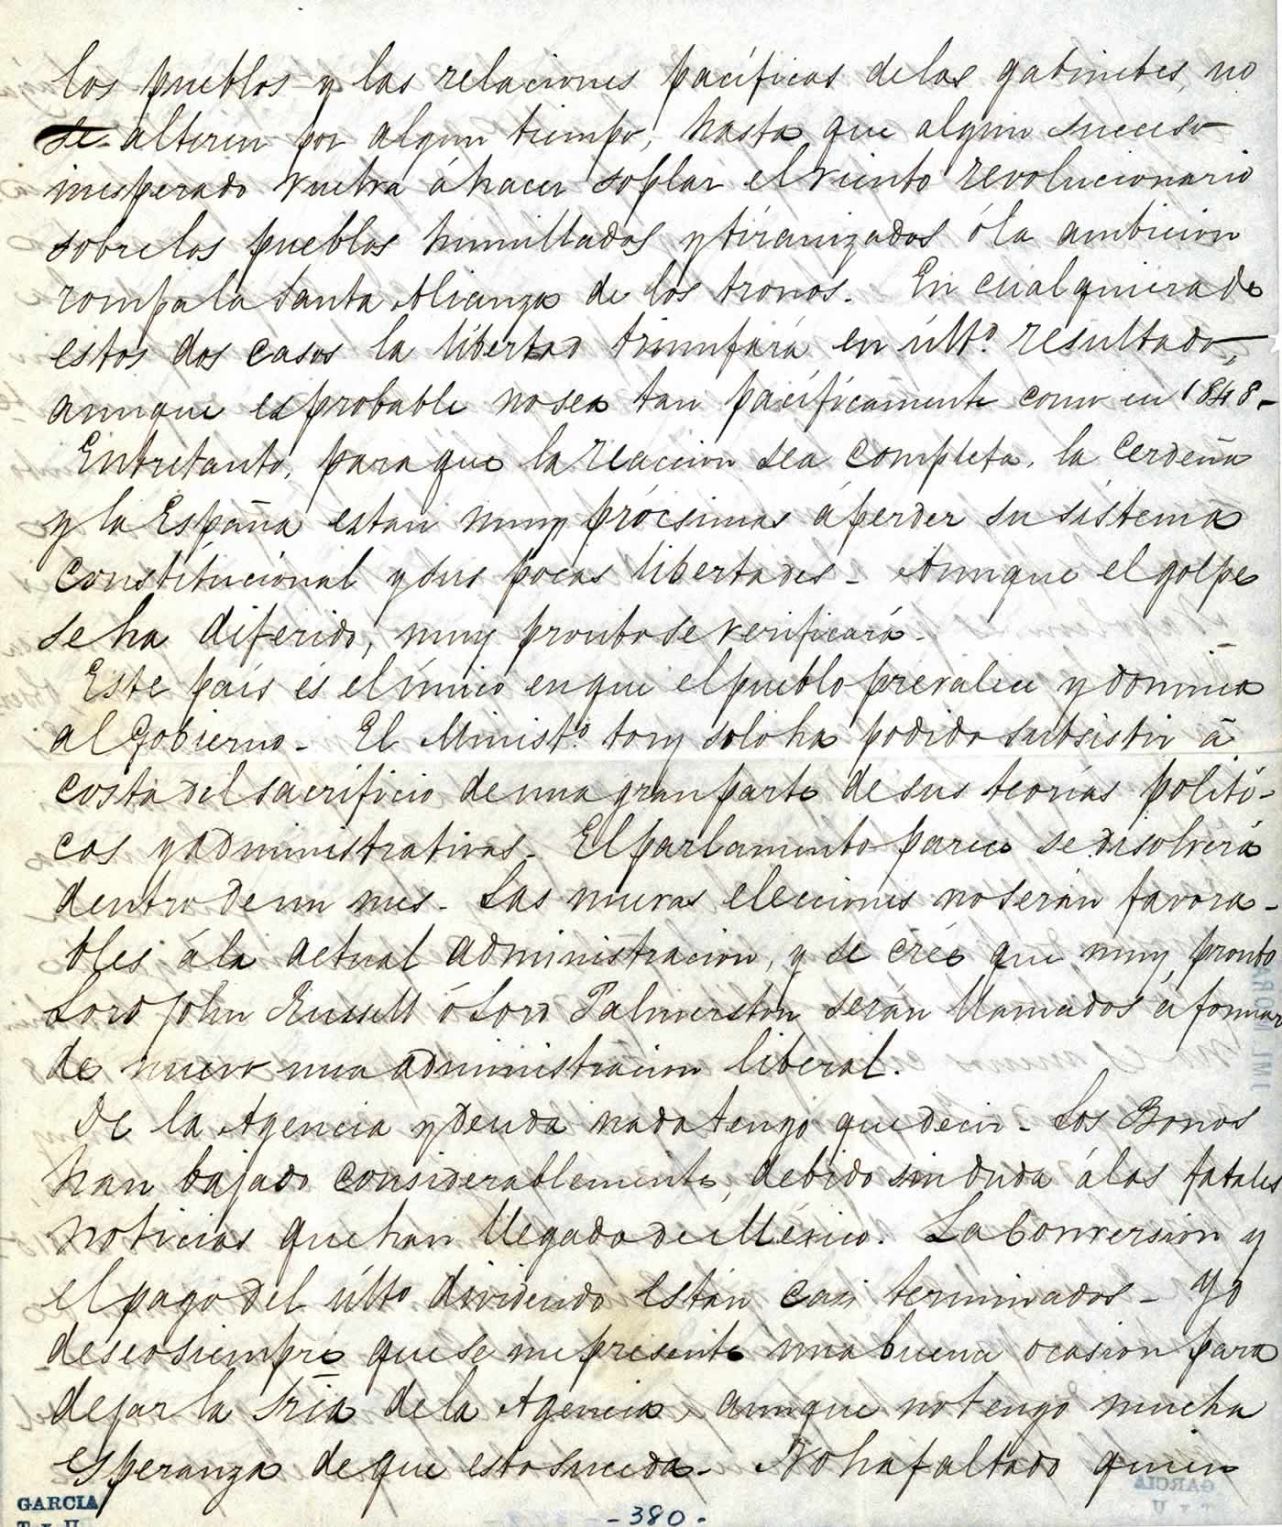 los pueblos y las relaciones pacíficas de los gabinetes, no
se alteren por algun tiempo, hasta que algun suceso
inesperado vuelva á hacer soplar el viento revolucionario
sobre los pueblos humillados y tiranizados ó la ambicion
rompa la Santa Alianza de los tronos. En cualquiera de
estos dos casos la libertad triunfará en últº resultado,
aunque es probable no sea tan pacíficamente como en 1848-
Entretanto, para que la reaccion sea completa, la Cerdeña
y la España estan muy prócsimas á perder su sistema
constitucional y sus pocas libertades - Aunque el golpe
se ha diferido, muy pronto se verificará -
Este país és el único en que el pueblo prevalece y domina
al Gobierno - El Ministº tory solo ha podido subsistir á
costa del sacrificio de una gran parte de sus teorías politi-
cas y administrativas - El parlamento parece se disolverá
dentro de un mes - Las nuevas elecciones no serán favora-
bles á la actual administracion, y se crée que muy pronto
Lord John Russell ó Lord Palmerston serán llamados á formar
de nuevo una administracion liberal.
De la Agencia y deuda nada tengo que decir - Los Bonos
han bajado considerablemente, debido sin duda á las fatales
noticias que han llegado de México. La Conversion y
el pago del últº dividendo están casi terminados - Yo
deseo siempre que se me presente una buena ocasion para
dejar la Sria de la Agencia, aunque no tengo mucha
esperanza de que esto suceda - No ha faltado quien
GARCIA
- 380 -